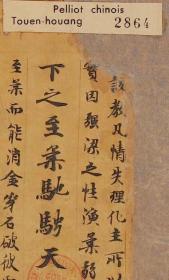 Pelliot chinois
Touen-houang 2864
教凡情失理化主所以
質因強梁之性演柔弱
下之至柔馳騁天
至柔而能消金穿石破彼